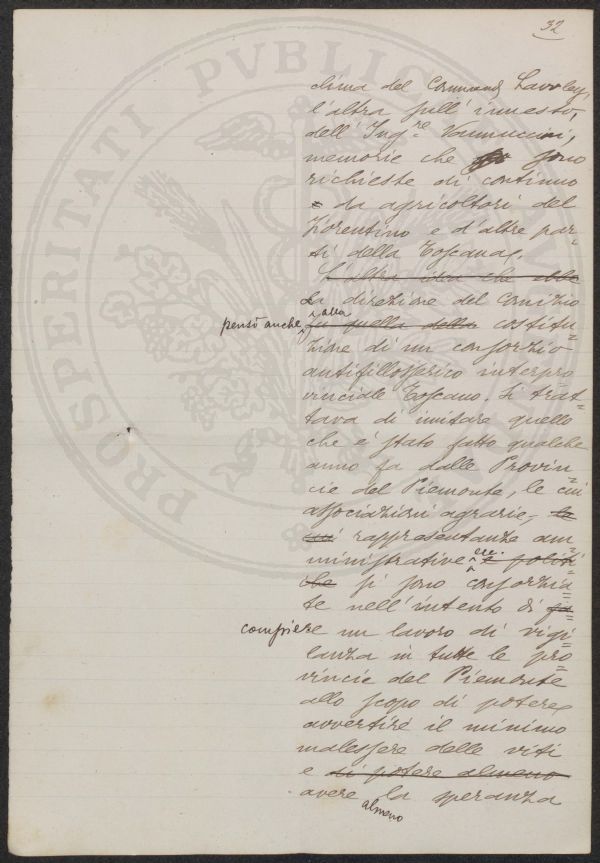 32
clima del Command Lawley,
l'altra sull'innesto,
dell'Ing.re Vannuccini,
memorie che sono
richieste di continuo
da agricoltori del
Fiorentino e d'altre par-
ti della Toscana.
L'altra idea che ebbe
La direzione del Comizio
pensò anche alla
fu quella della costitu-
zione di un consorzio
antifillosserico interpro
vinciale Toscano. Si trat
tava di imitare quello
che è stato fatto qualche
anno fa dalle Provin
cie del Piemonte, le cui
associazioni agrarie, le
cui rappresentanze am
ministrative ecc. e politi
che si sono consorzia
te nell'intento di fa
compiere un lavoro di vigi
lanza in tutte le pro
vincie del Piemonte
allo scopo di potere
avvertire il minimo
malessere delle viti
e di potere almeno
avere la speranza
almeno
PROSPERITATI PVBLICAE